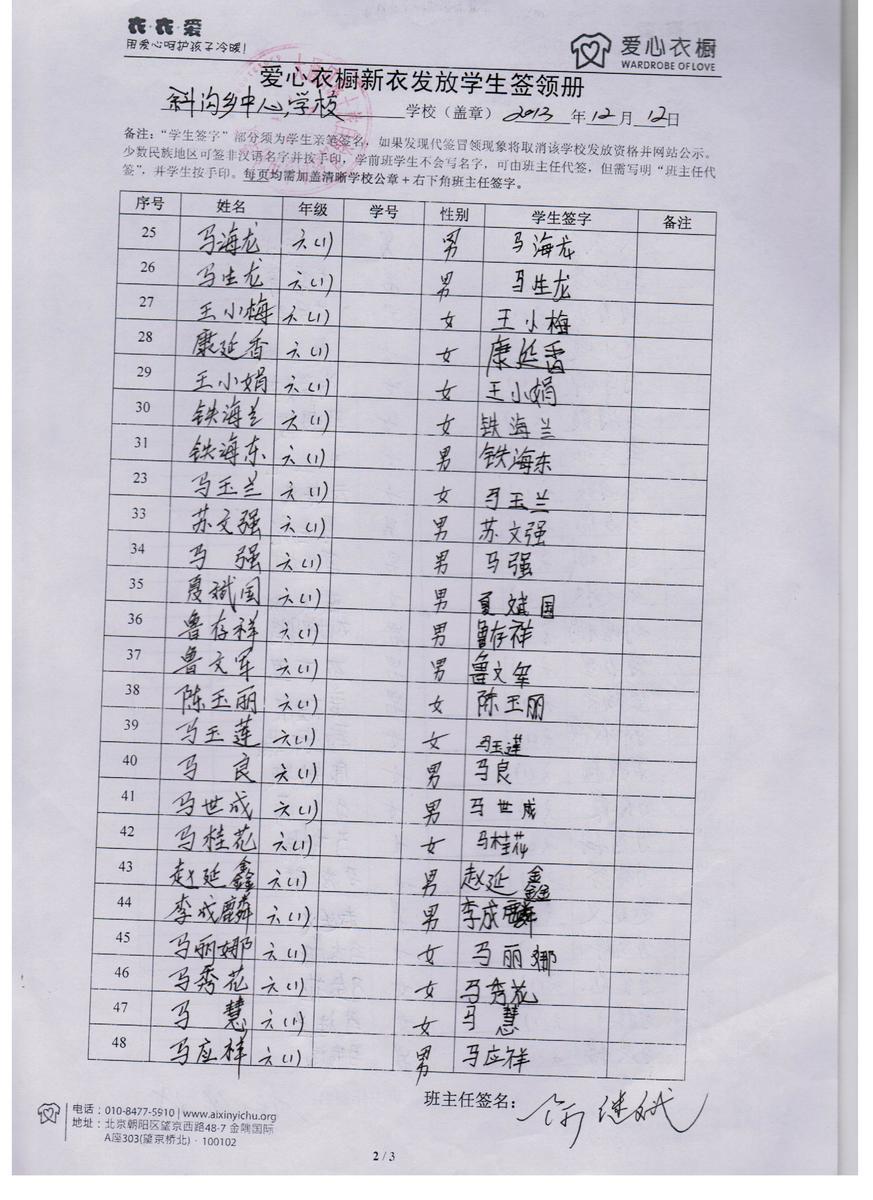 衣·衣·爱
用爱心呵护孩子冷暖!
爱心衣橱
WARDROBE OF LOVE
爱心衣橱新衣发放学生签领册
斜沟乡中心学校 学校（盖章） 2013 年 12 月 12 日
备注：“学生签字”部分须为学生亲笔签名，如果发现代签冒领现象将取消该学校发放资格并网站公示。
少数民族地区可签非汉语名字并按手印，学前班学生不会写名字，可由班主任代签，但需写明“班主任代
签”，并学生按手印。每页均需加盖清晰学校公章+右下角班主任签字。
序号 姓名 年级 学号 性别 学生签字 备注
25 马海龙 六(1) 男 马海龙
26 马生龙 六(1) 男 马生龙
27 王小梅 六(1) 女 王小梅
28 康延香 六(1) 女 康延香
29 王小娟 六(1) 女 王小娟
30 铁海兰 六(1) 女 铁海兰
31 铁海东 六(1) 男 铁海东
23 马玉兰 六(1) 女 马玉兰
33 苏文强 六(1) 男 苏文强
34 马 强 六(1) 男 马强
35 夏斌国 六(1) 男 夏斌国
36 鲁存祥 六(1) 男 鲁存祥
37 鲁文军 六(1) 男 鲁文军
38 陈玉丽 六(1) 女 陈玉丽
39 马玉莲 六(1) 女 马玉莲
40 马 良 六(1) 男 马良
41 马世成 六(1) 男 马世成
42 马桂花 六(1) 女 马桂花
43 赵延鑫 六(1) 男 赵延鑫
44 李成麟 六(1) 男 李成麟
45 马丽娜 六(1) 女 马丽娜
46 马秀花 六(1) 女 马秀花
47 马 慧 六(1) 女 马 慧
48 马应祥 六(1) 男 马应祥
班主任签名：
电话：010-8477-5910 | www.aixinyichu.org
地址：北京朝阳区望京西路48-7 金隅国际
A座303(望京桥北)·100102
2 / 3